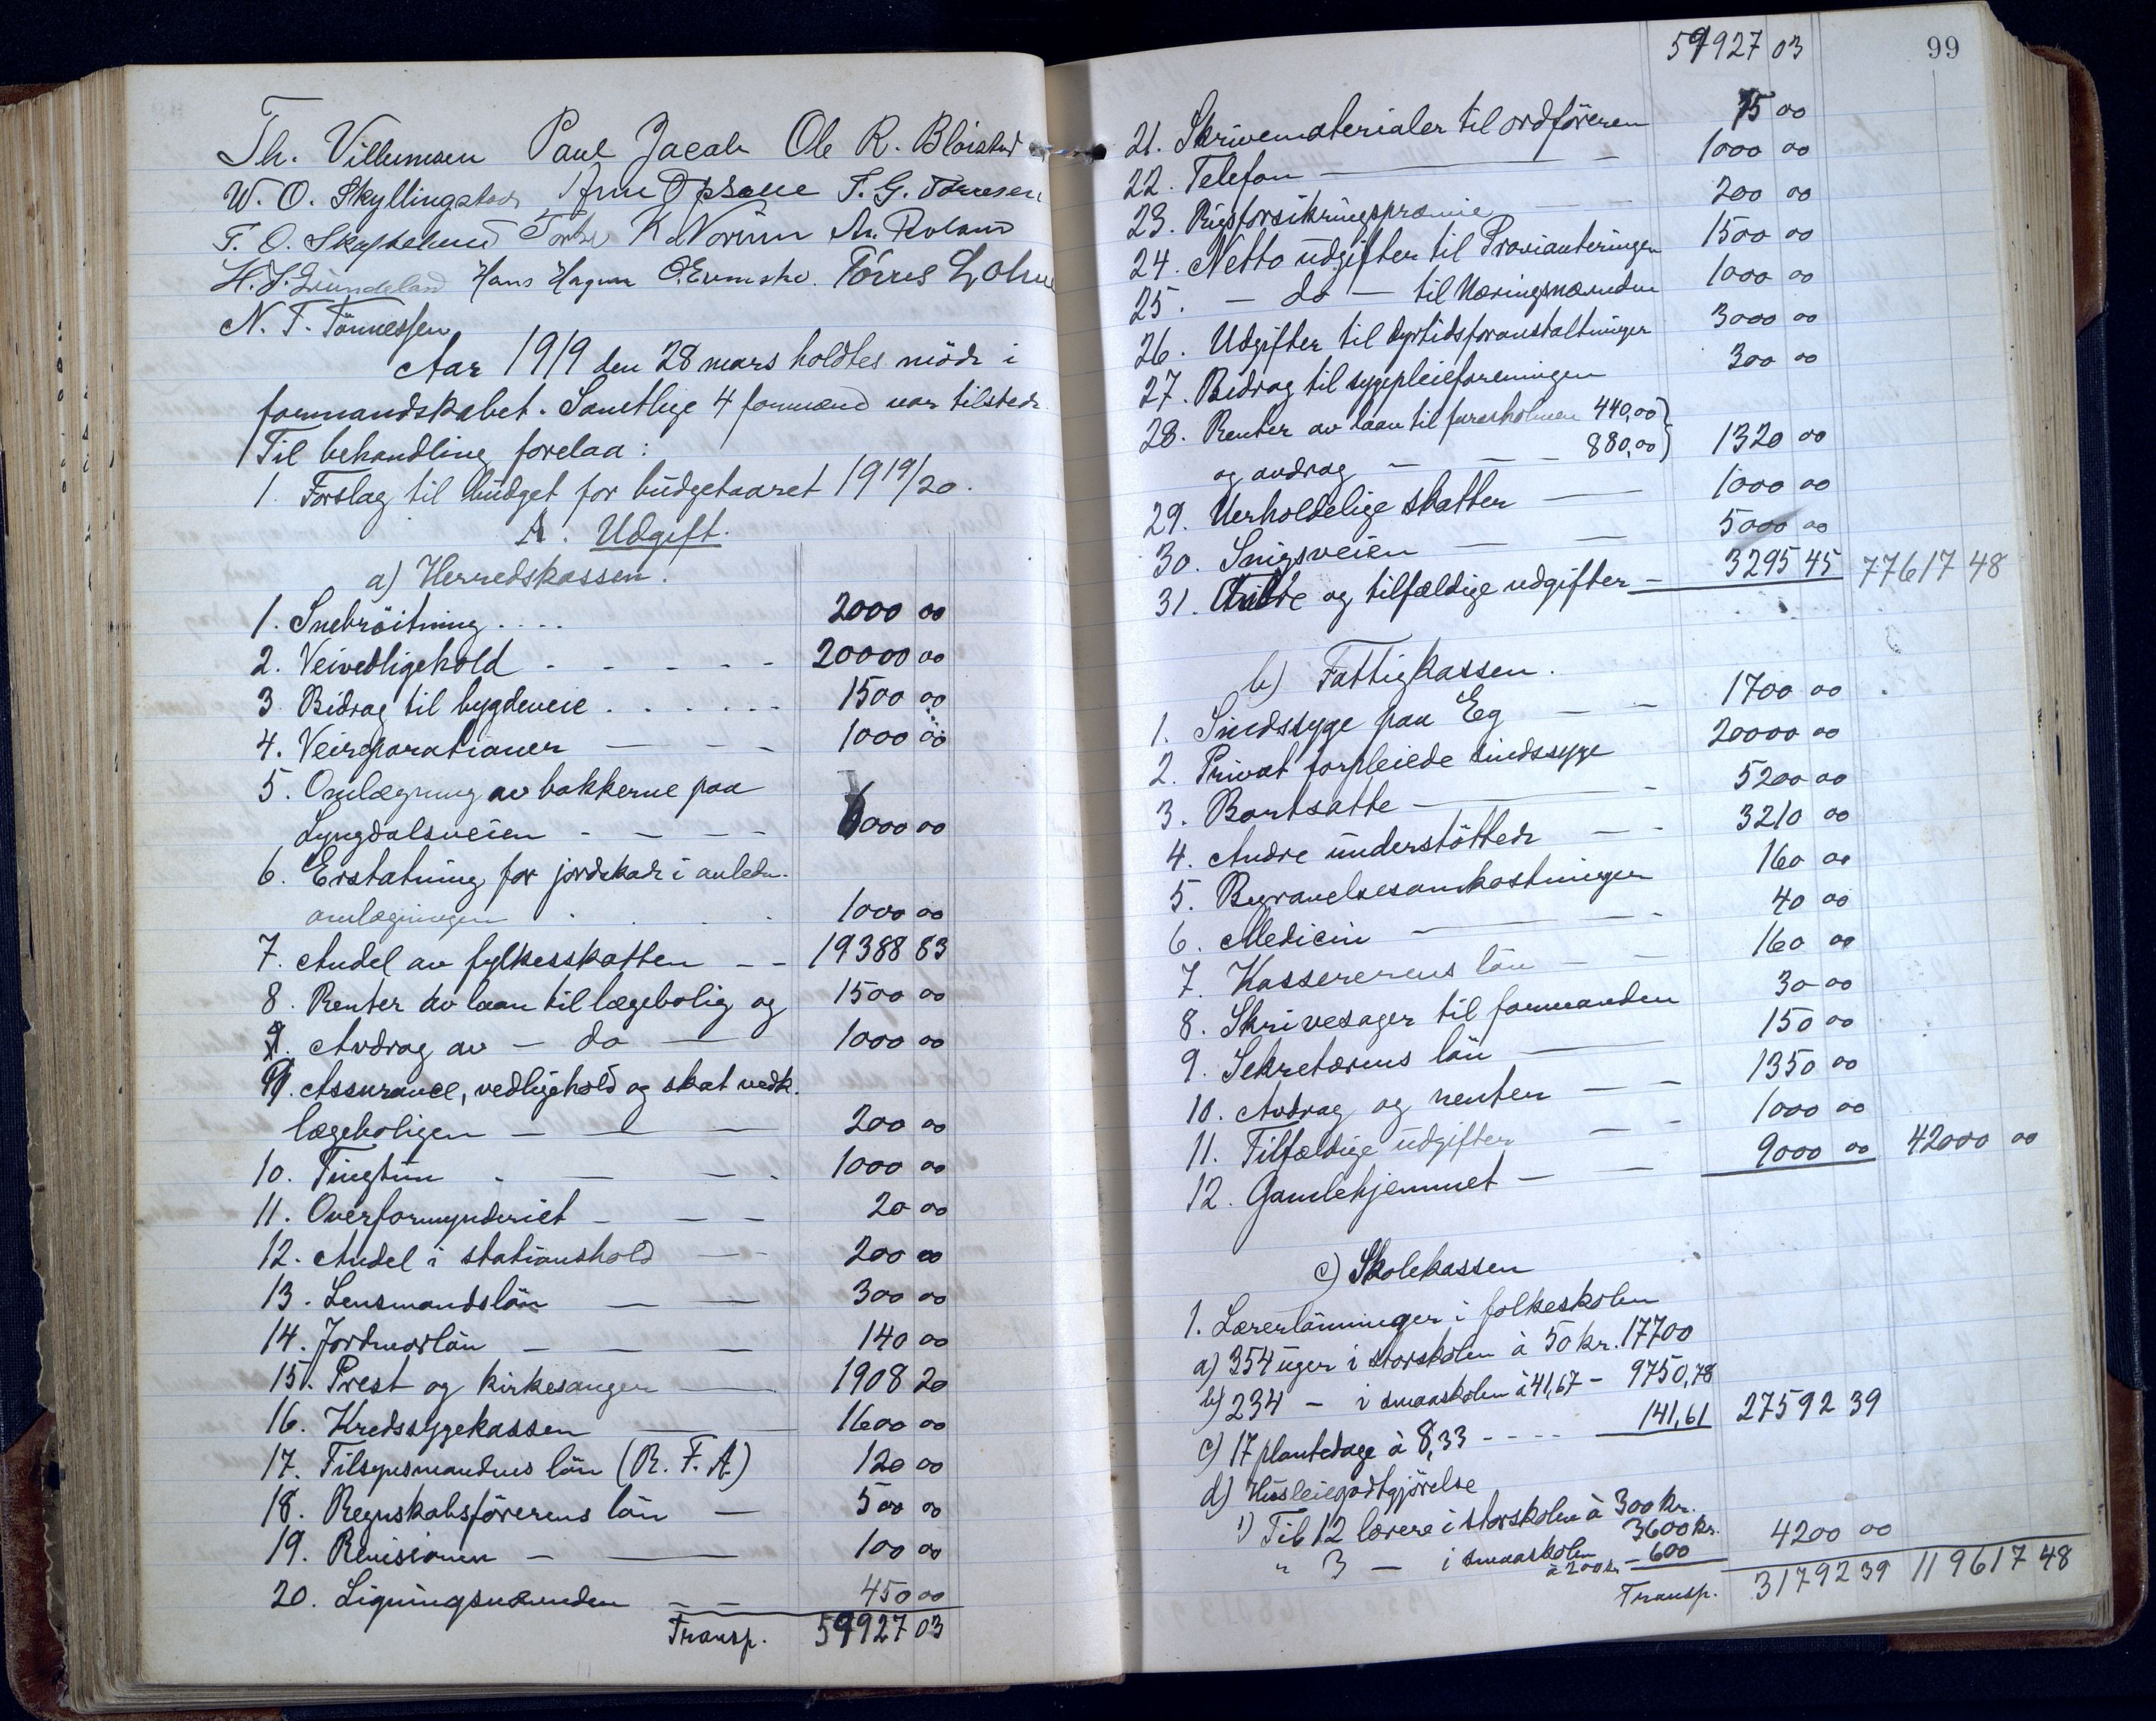 Th. Villumsen Paul Jacob Ole R. Bläistad
W. O. Skyllingstad Arne Opsal T. G. Tørresen
T. O. Skaftelund K. Norum An. Roland
H. J. Lundeland Hans Hagum Tørres Lohne
N. T. Tönnessen
Aar 1919 den 28 mars holdtes möde i
formandskabet. Samtlige 4 formænd var tilstede.
Til behandling forelaa:
1. Forslag til budget for budgetaaret 1919/20.
A. Udgift.
a) Herredskassen.
1. Snebröitning .... 2000 00
2. Veivedligehold - - - - - 20000 00
3. Bidrag til bygdeveie . . . . . . 1500 00
4. Veireparationer — — - - 1000 00
5. Omlægning av bakkerne paa
Lyngdalsveien - — — - 6000 00
6. Erstatning for jordskade i anledn.
omlægningen . . . . 1000 00
7. Andel av fylkesskatten - - 19388 83
8. Renter av laan til lægebolig og 1500 00
Avdrag av — do — 1000 00
9. Assurance, vedligehold og skat vedk.
lægeboligen — — — 200 00
10. Tingtun - — - - 1000 00
11. Overformynderiet - — — 20 00
12. Andel i stationshold — - 200 00
13. Lensmandslön — — 300 00
14. Jordmorlön — — — 140 00
15. Prest og kirkesanger — 1908 20
16. Kredssygekassen — 1600 00
17. Tilsynsmandens lön (R. F. A.) 120 00
18. Regnskabsförerens lön — 500 00
19. Revisionen — — 100 00
20. Ligningsnævnden - - 450 00
Transp. 59927 03
99
59927 03
21. Skrivematerialer til ordföreren 75 00
22. Telefon — — - 1000 00
23. Rigsforsikringspræmie — — 200 00
24. Netto udgifter til Provianteringen 1500 00
25. — do — til Næringsnævnden 1000 00
26. Udgifter til dyrtidsforanstaltninger 3000 00
27. Bidrag til sygepleieforeningen 300 00
28. Renter av laan til 440,00
og avdrag — — - 880,00 1320 00
29. Uerholdelige skatter — 1000 00
30. Snigsveien — — 5000 00
31. Andre og tilfældige udgifter — 3295 45 77617 48
b) Fattigkassen.
1. Sindssyge paa Eg — - 1700 00
2. Privat forpleiede sindssyge 20000 00
3. Bortsatte — - 5200 00
4. Andre understöttede — - 3210 00
5. Begravelsesomkostninger 160 00
6. Medicin — - 40 00
7. Kassererens lön — - 160 00
8. Skrivesager til formanden 30 00
9. Sekretærens lön — 150 00
10. Avdrag og renter — - 1350 00
11. Tilfældige udgifter — - 1000 00
12. Gamlehjemmet — — 9000 00 42000 00
c) Skolekassen
1. Lærerlönninger i folkeskolen
a) 354 uger i storskolen à 50 kr. 17700
b) 234 — i smaaskolen à 41,67 - 9750,78
c) 17 plantedage à 8,33 - - - - 141,61 27592 39
d) Husleiegodtgjörelse
1) Til 12 lærere i storskolen à 300 kr.
3600 kr.
" 3 — i smaaskolen à 200 kr. - 600 4200 00
Transp. 31792 39 119617 48